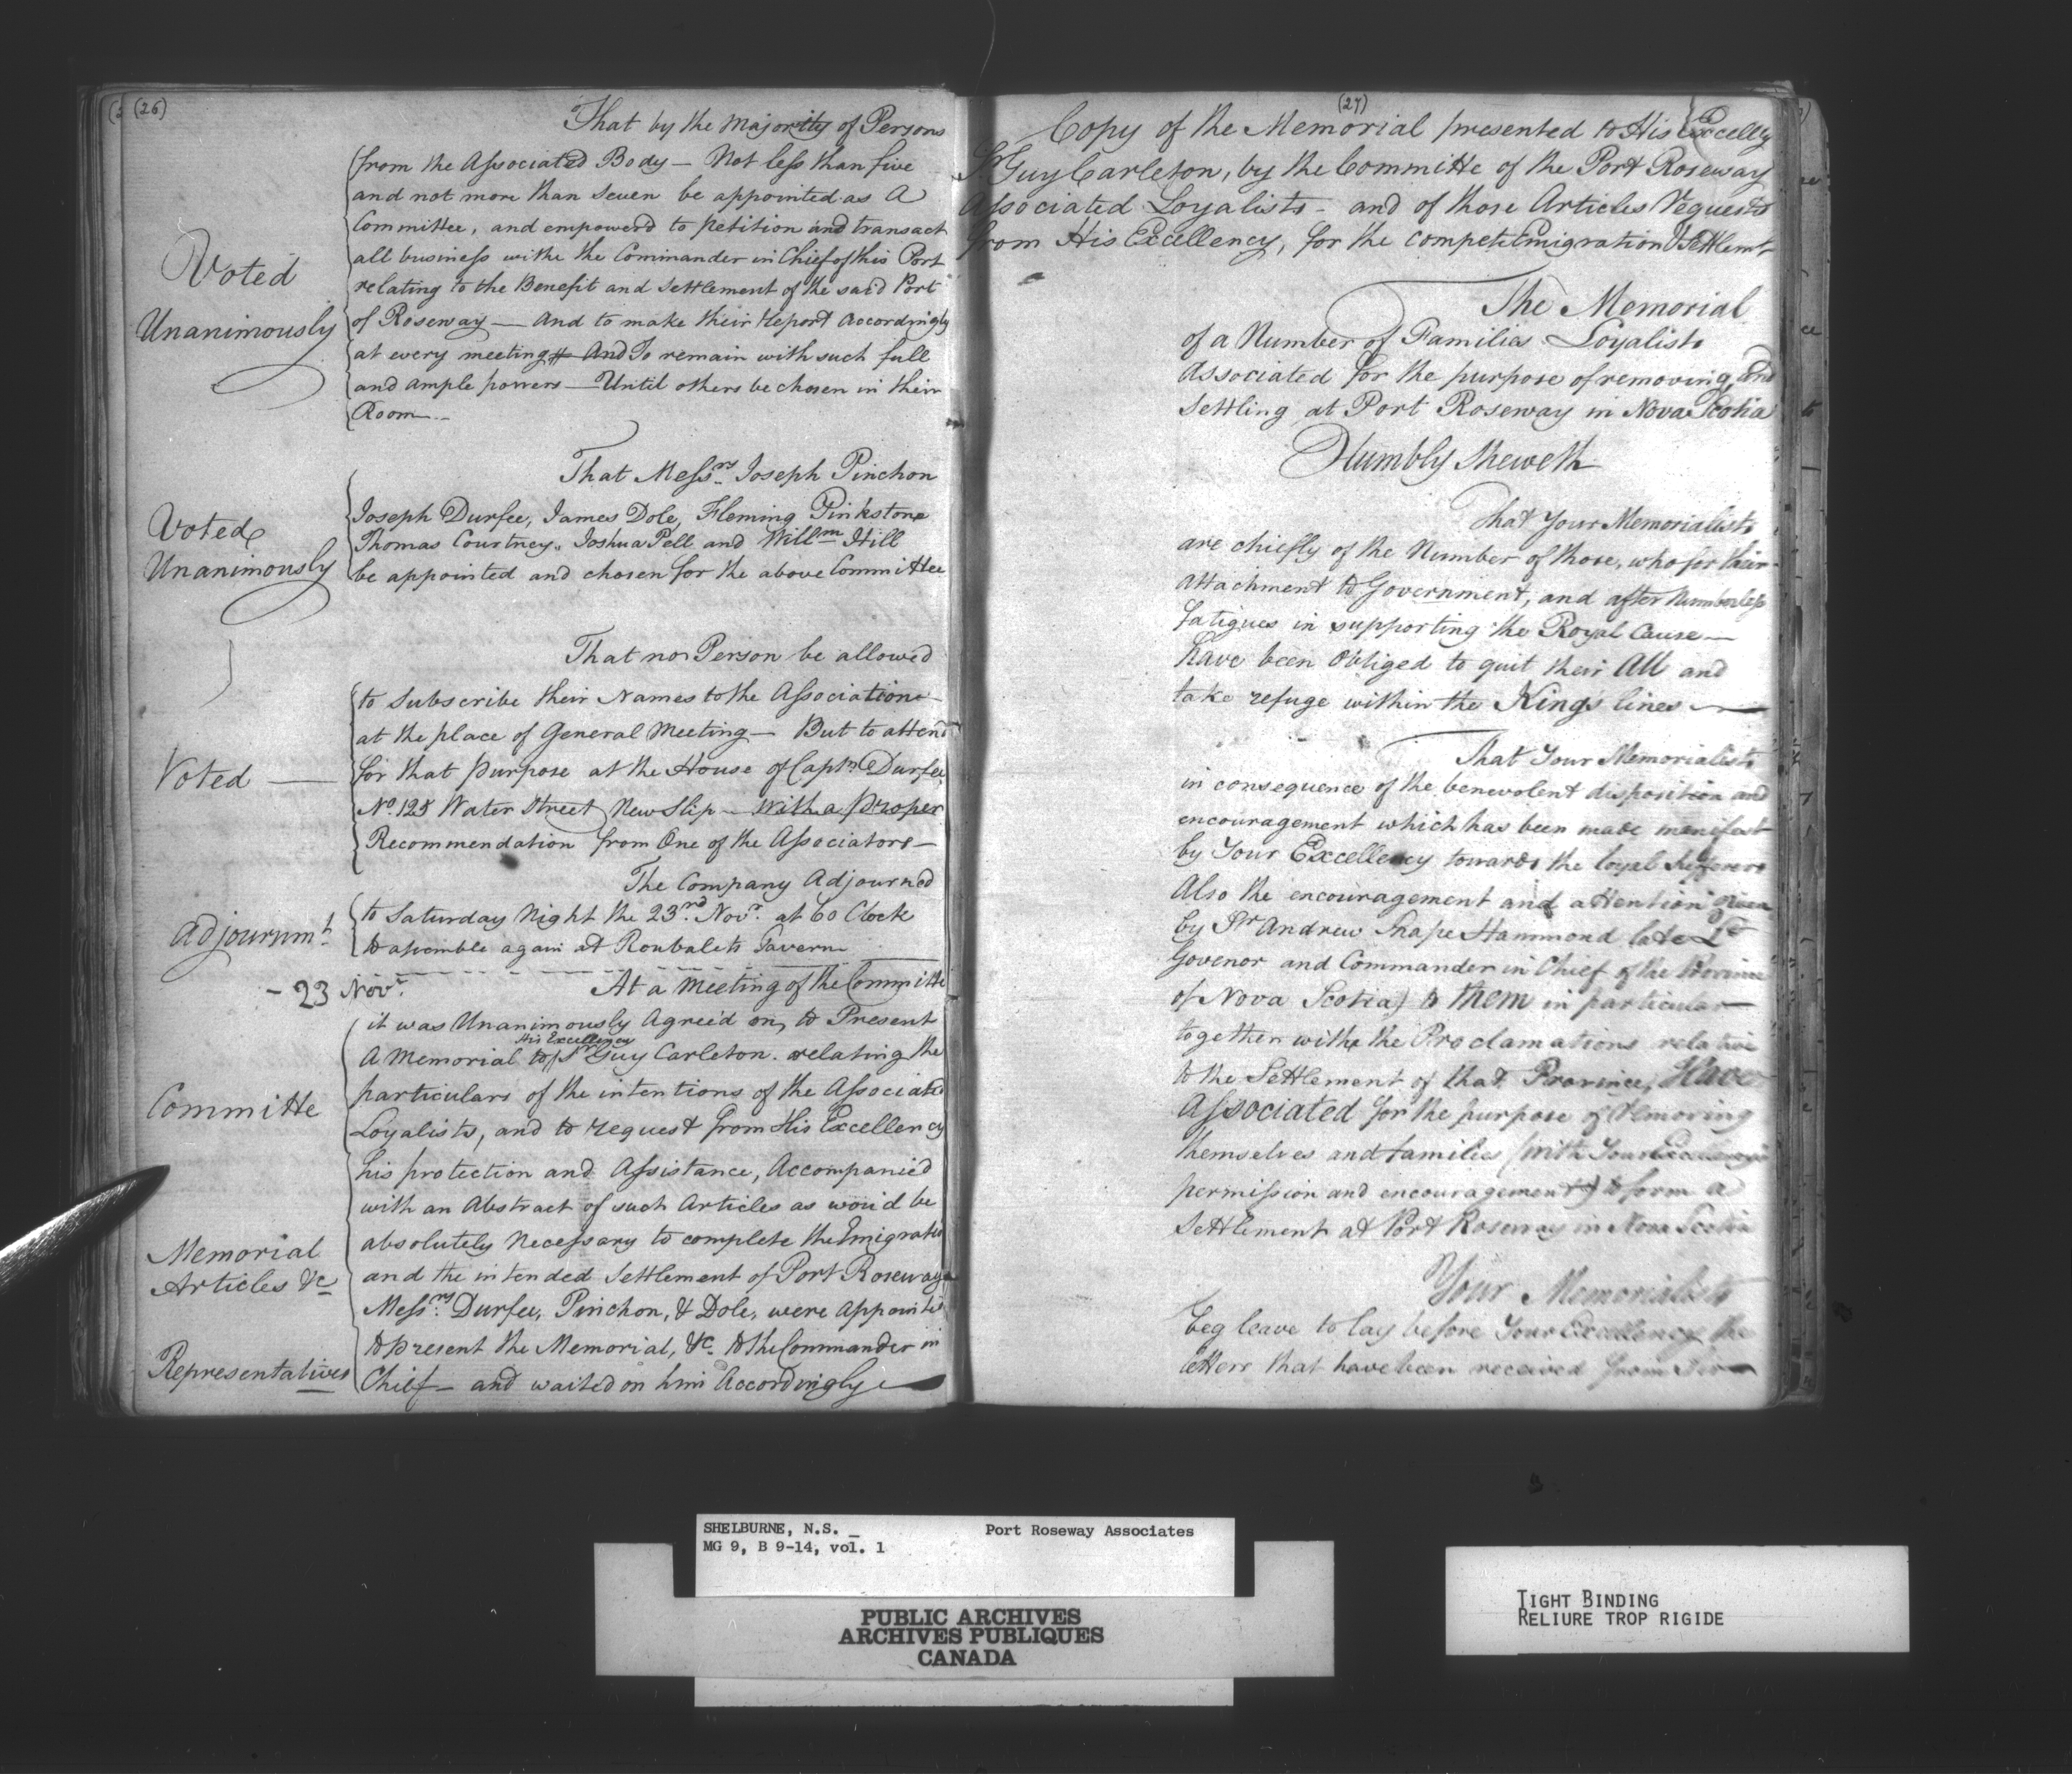 (26)
That by the Majority of Persons
from the Associated Body — Not less than five
and not more than Seven be appointed as A
Committee, and empowerd to petition and transact
all business withe the Commander in Chief of this Port
relating to the Benefit and Settlement of the said Port
of Roseway — And to make their report Accordingly
at every meeting And To remain with such full
and ample powers — Until others be chosen in their
Room —
Voted
Unanimously
That Messrs. Joseph Pinchon
Joseph Durfee, James Dole, Fleming Pinkstone
Thomas Courtney, Joshua Pell and Willm Hill
be appointed and chosen for the above Committee
Voted
Unanimously
That no Person be allowed
to Subscribe their Names to the Association
at the place of General Meeting — But to attend
for that purpose at the House of Captn Durfee,
No. 125 Water Street New Slip — with a proper
Recommendation from One of the Associators —
Voted —
The Company Adjourned
to Saturday Night the 23rd Novr. at 6 o Clock
to assemble again at Roubalets Tavern
Adjournmt
- 23 Novr.
At a Meeting of the Committe
it was Unanimously Agreed on, to Present
His Excellency
A Memorial to Sr Guy Carleton. relating the
particulars of the intentions of the Associated
Loyalists, and to request from His Excellency
his protection and Assistance, Accompanied
with an Abstract of such Articles as wou'd be
absolutely Necessary to complete the Emigration
and the intended Settlement of Port Roseway
Messrs. Durfee, Pinchon, & Dole, were appointed
to present the Memorial, &c. to the Commander in
Chief — and waited on him Accordingly —
Committe
Memorial
Articles &c
Representatives
(27)
Copy of the Memorial presented to His Excelly
Sr. Guy Carleton, by the Committe of the Port Roseway
Associated Loyalists — and of those Articles request
from His Excellency, for the Emigration & Settlemt
The Memorial
of a Number of Families Loyalists
Associated for the purpose of removing, and
Settling at Port Roseway in Nova Scotia
Humbly Sheweth
That Your Memorialists
are chiefly of the Number of those, who for their
Attachment to Government, and after Numberless
fatigues in supporting the Royal Cause —
have been Obliged to quit their All and
take refuge within the Kings lines —
That Your Memorialists
in consequence of the benevolent disposition and
encouragement which has been made manifest
by Your Excellency towards the loyal Sufferers
Also the encouragement and attention given
by Sr Andrew Snape Hammond late Lt
Govenor and Commander in Chief of the Province
of Nova Scotia) to them in particular —
together withe the Proclamations relative
to the Settlement of that Province, Have
Associated for the purpose of removing
themselves and families (with Your Excellencys
permission and encouragement) to form a
Settlement at Port Roseway in Nova Scotia
Your Memorialists
beg leave to lay before Your Excellency the
letters that have been received from Sir —
SHELBURNE, N.S. _ Port Roseway Associates
MG 9, B 9-14, vol. 1
PUBLIC ARCHIVES
ARCHIVES PUBLIQUES
CANADA
TIGHT BINDING
RELIURE TROP RIGIDE